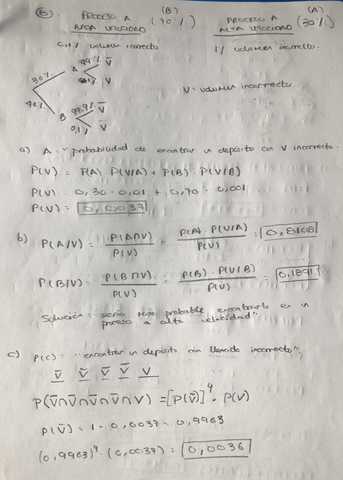 6.
PROCESO A BAJA VELOCIDAD (B) (70%)
PROCESO A ALTA VELOCIDAD (A) (30%)
0,1% volumen incorrecto
1% volumen incorrecto.
30% A 99% V̄
V
V = volumen incorrecto.
70% B 99,9% V̄
0,1% V
a) A: "probabilidad de encontrar un depósito con V incorrecto.
P(V) = P(A) · P(V/A) + P(B) · P(V/B)
P(V) = 0,30 · 0,01 + 0,70 · 0,001
P(V) = 0,0037
b) P(A/V) = P(A∩V) / P(V) = P(A) · P(V/A) / P(V) = 0,8108
P(B/V) = P(B∩V) / P(V) = P(B) · P(V/B) / P(V) = 0,1891
Solución = sería más probable encontrarle en un
proceso a alta velocidad"
c) P(C) = "encontrar un depósito con llenado incorrecto".
V̄ V̄ V̄ V̄ V
P(V̄∩V̄∩V̄∩V̄∩V) = [P(V̄)]⁴ · P(V)
P(V̄) = 1 - 0,0037 = 0,9963
(0,9963)⁴ · (0,0037) = 0,0036